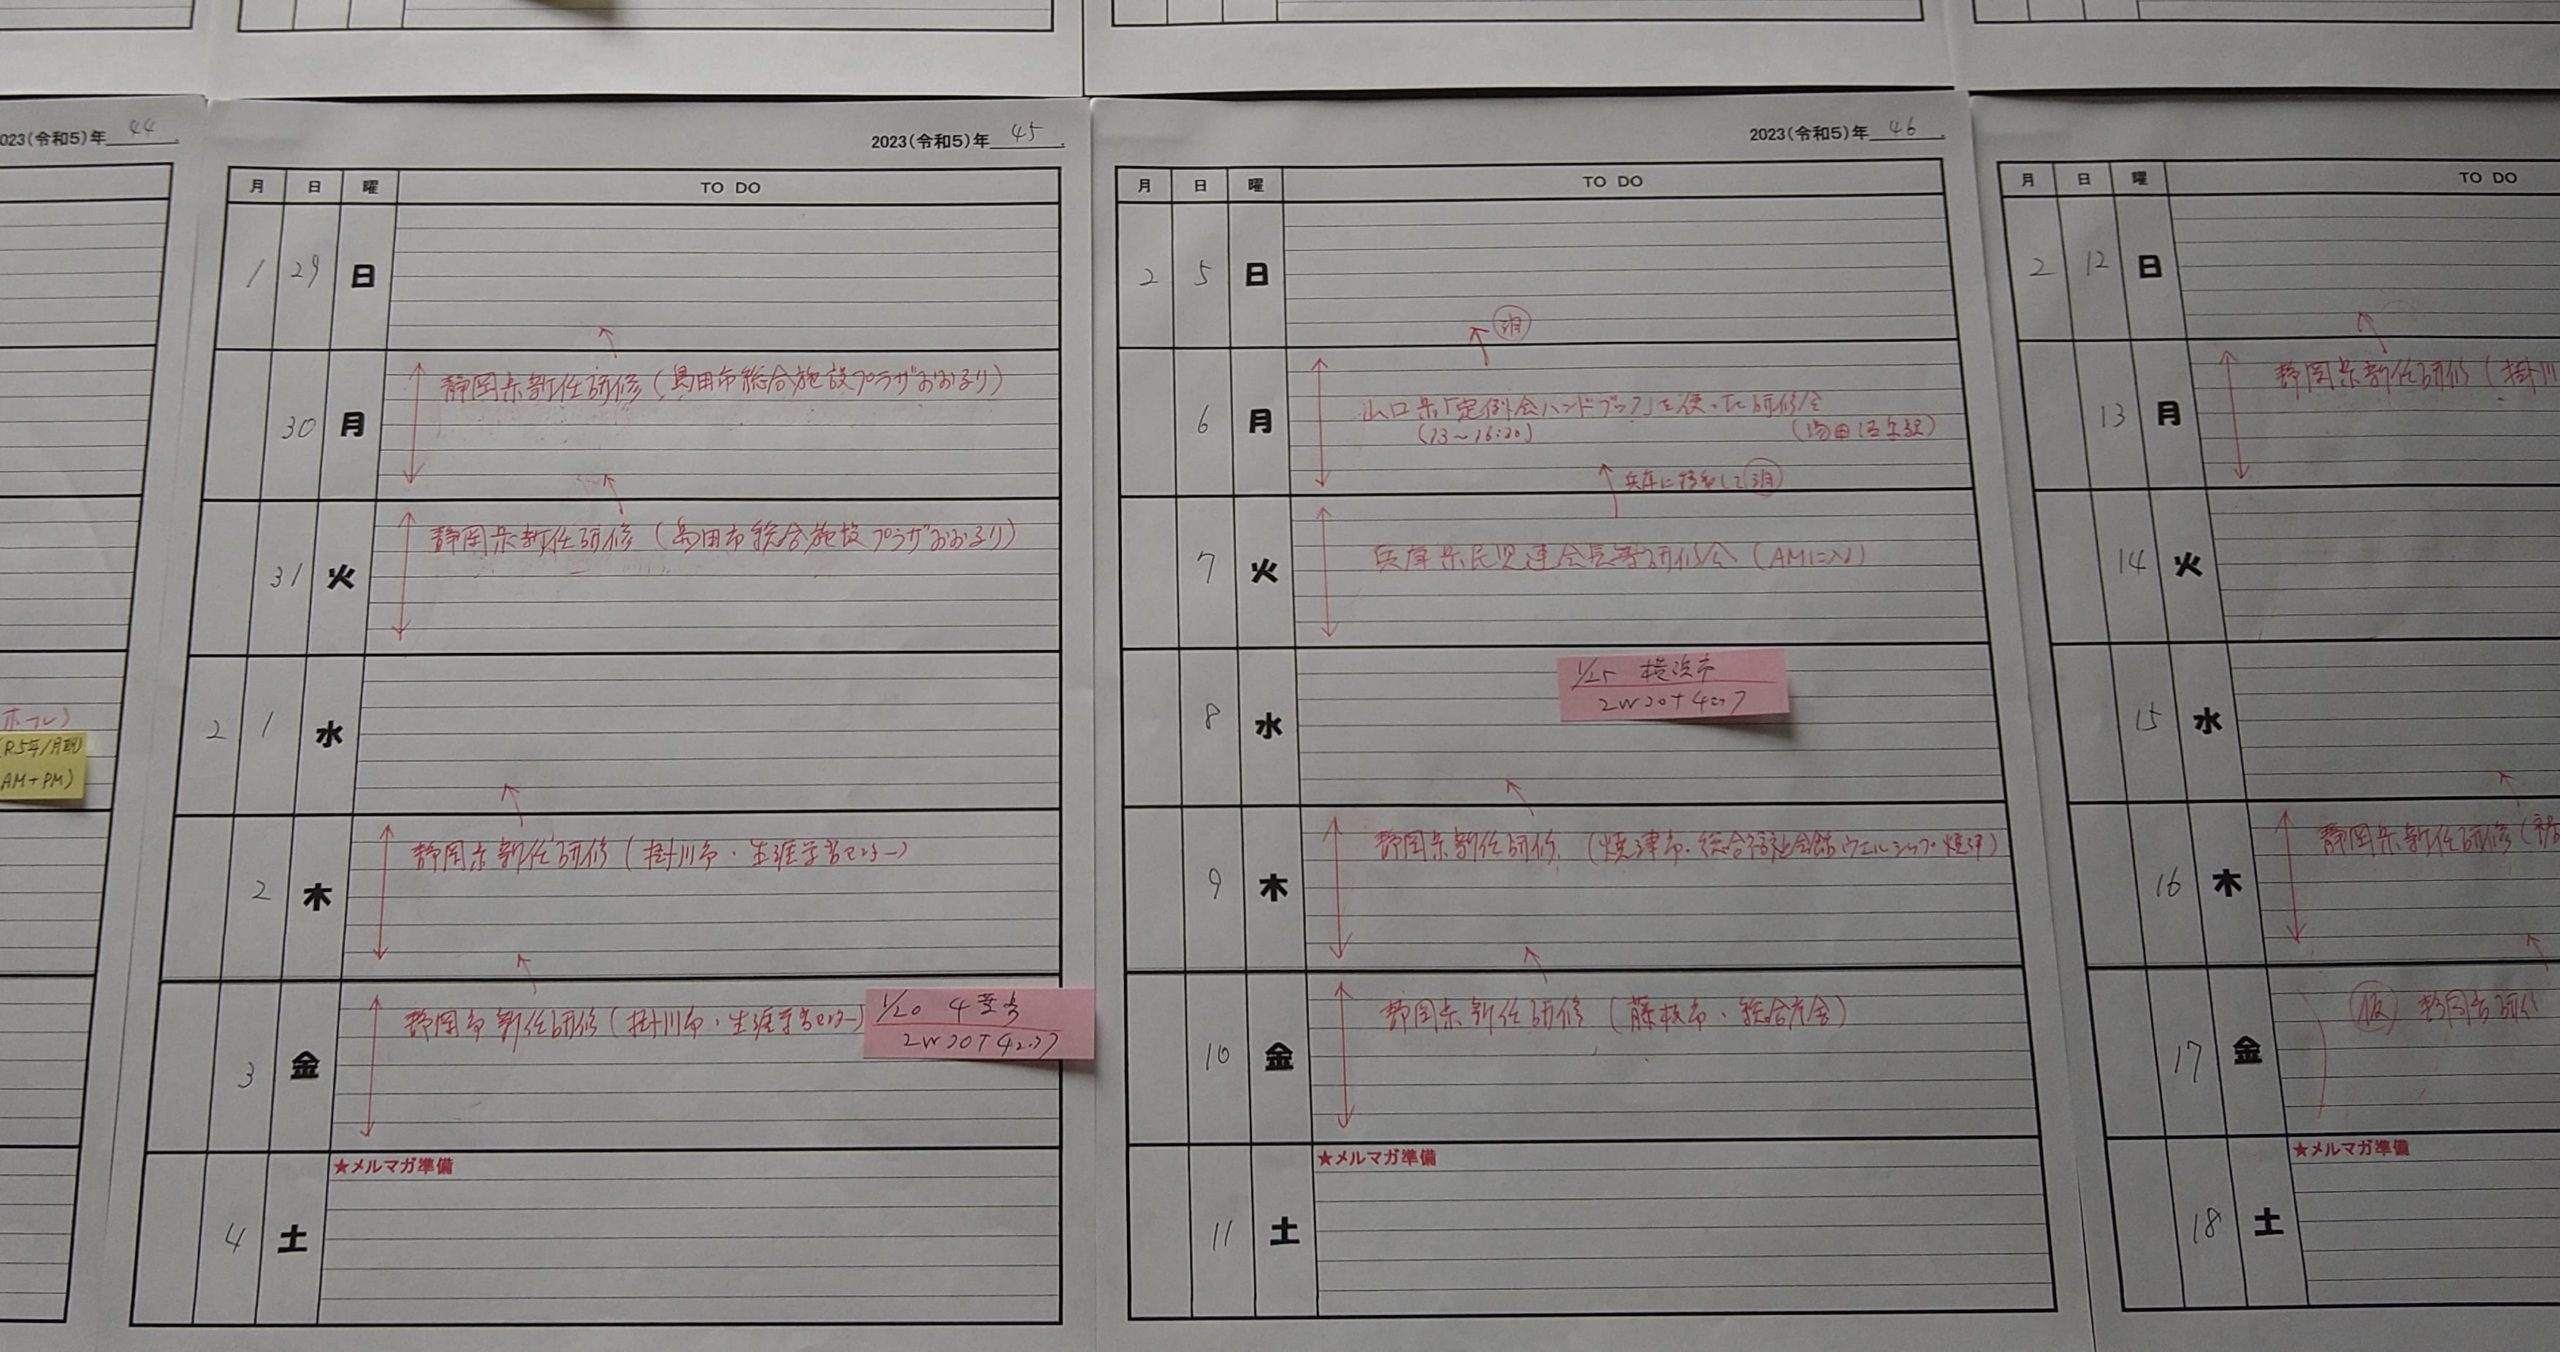 2023(令和5)年 44
ホール)
(R5年1月期)
AM+PM)
2023(令和5)年 45
月 日 曜 TO DO
1 29 日
30 月 静岡県新任研修(島田市総合施設プラザおおるり)
31 火 静岡県新任研修(島田市総合施設プラザおおるり)
2 1 水
2 木 静岡県新任研修(掛川市・生涯学習センター)
3 金 静岡市新任研修(掛川市・生涯学習センター)
1/20
4 土 ★メルマガ準備
2023(令和5)年 46
月 日 曜 TO DO
2 5 日
泊
6 月 山口県「定例会ハンドブック」を使った研修会
(13〜16:20) (湯田
兵庫に移動して 泊
7 火 兵庫県民児連会長等研修会(AMに入り)
8 水
1/25 横浜市
9 木 静岡県新任研修(焼津市・総合福祉会館ウェルシップ焼津)
10 金 静岡県新任研修(藤枝市・総合庁舎)
11 土 ★メルマガ準備
月 日 曜 TO DO
2 12 日
13 月 静岡県新任研修(掛川
14 火
15 水
16 木 静岡県新任研修(
17 金 (仮) 静岡市研修
18 土 ★メルマガ準備